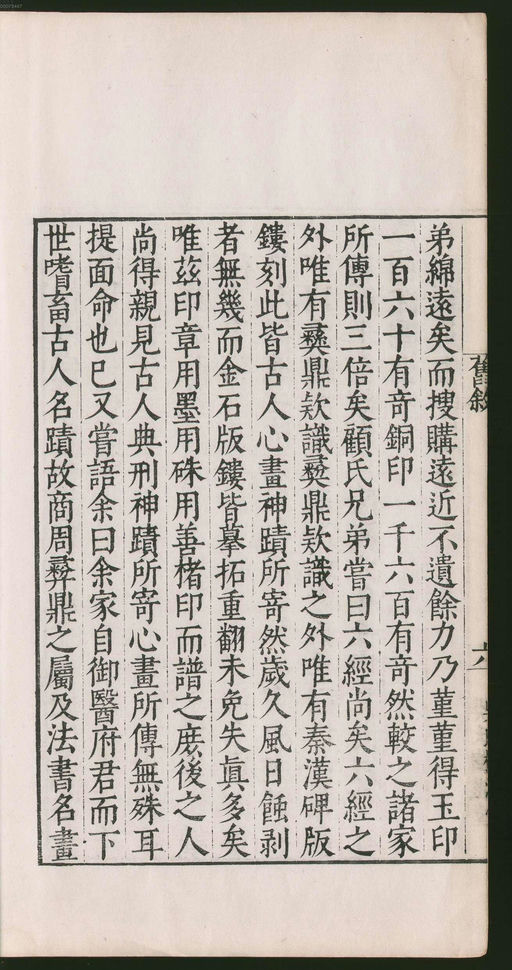 舊敘
六
弟綿遠矣而搜購遠近不遺餘力乃菫菫得玉印
一百六十有奇銅印一千六百有奇然較之諸家
所傳則三倍矣顧氏兄弟嘗曰六經尚矣六經之
外唯有彞鼎欵識彞鼎欵識之外唯有秦漢碑版
鏤刻此皆古人心畫神蹟所寄然歲久風日蝕剥
者無幾而金石版鏤皆摹拓重翻未免失眞多矣
唯茲印章用墨用硃用善楮印而譜之庶後之人
尚得親見古人典刑神蹟所寄心畫所傳無殊耳
提面命也已又嘗語余曰余家自御醫府君而下
世嗜畜古人名蹟故商周彞鼎之屬及法書名畫